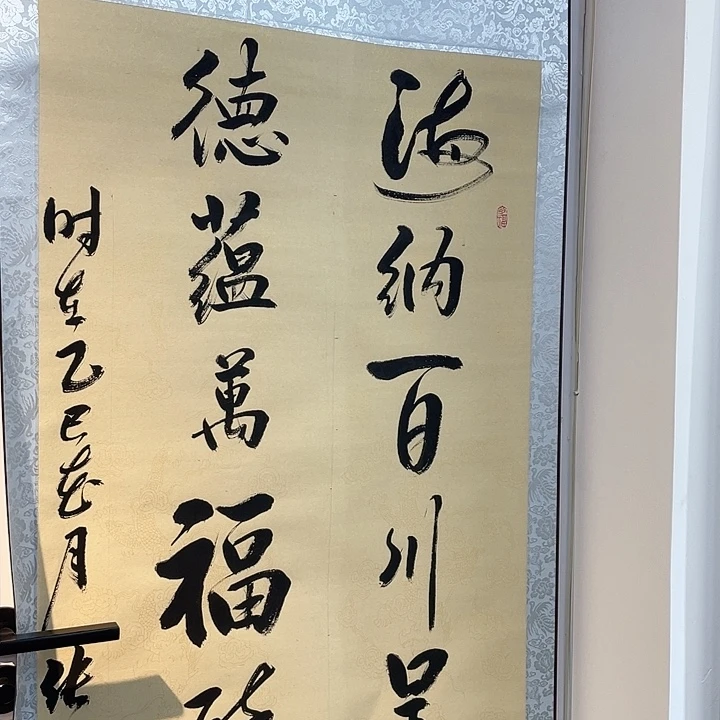 海纳百川
德蕴萬福
时在乙巳花月